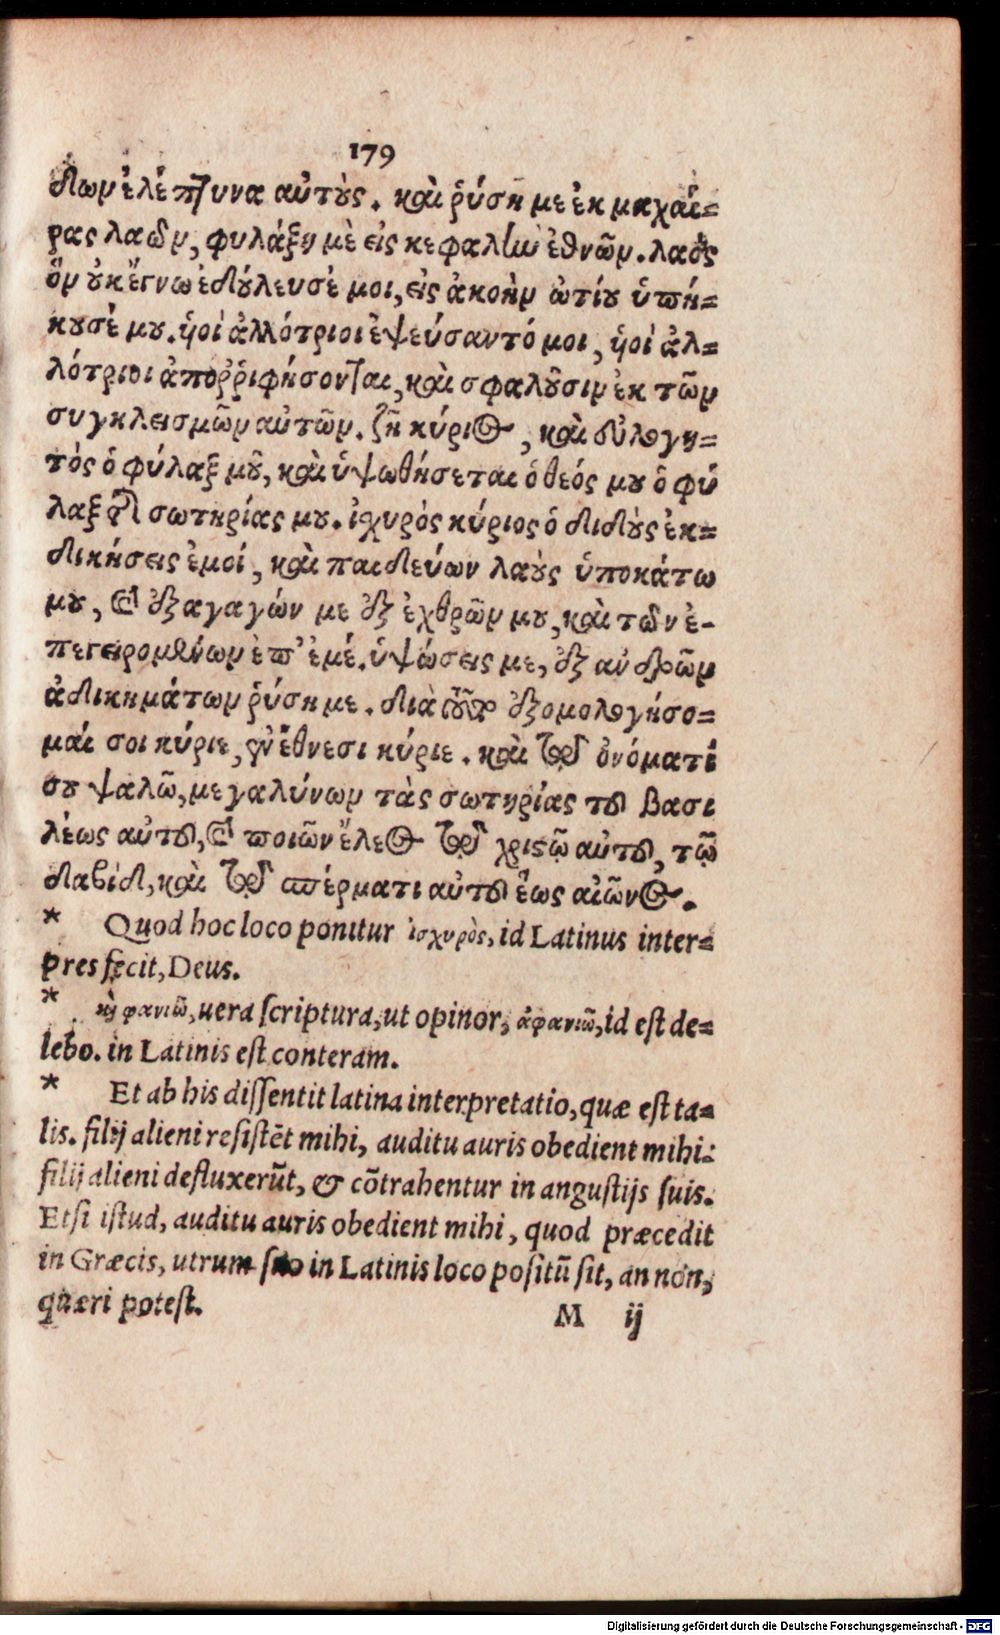 179
δωμ ἐλέπτυνα αὐτούς. καὶ ῥύσῃ με ἐκ μαχαί=
ρας λαῶν, φυλάξῃ μὲ εἰς κεφαλὴν ἐθνῶν. λαὸς
ὃν οὐκ ἔγνω ἐδούλευσέ μοι, εἰς ἀκοὴν ὠτίου ὑπή=
κουσέ μου. ὑοὶ ἀλλότριοι ἐψεύσαντό μοι, ὑοὶ ἀλ=
λότριοι ἀποῤῥιφήσονται, καὶ σφαλοῦσιν ἐκ τῶν
συγκλεισμῶν αὐτῶν. ζῇ κύριος, καὶ εὐλογη=
τὸς ὁ φύλαξ μοῦ, καὶ ὑψωθήσεται ὁ θεός μου ὁ φύ
λαξ τῆς σωτηρίας μου. ἰχυρὸς κύριος ὁ διδοὺς ἐκ=
δικήσεις ἐμοί, καὶ παιδεύων λαοὺς ὑποκάτω
μου, καὶ ἐξαγαγών με ἐξ ἐχθρῶν μου, καὶ τῶν ἐ-
πεγειρομένων ἐπ’ ἐμέ. ὑψώσεις με, ἐξ ἀνδρῶν
ἀδικημάτων ῥύσῃ με. διὰ τοῦτο ἐξομολογήσο=
μαί σοι κύριε, ἐν ἔθνεσι κύριε. καὶ τῷ ὀνόματί
σου ψαλῶ, μεγαλύνων τὰς σωτηρίας τοῦ βασι
λέως αὐτοῦ, καὶ ποιῶν ἔλεος τῷ χριστῷ αὐτοῦ, τῷ
δαβίδ, καὶ τῷ σπέρματι αὐτοῦ ἕως αἰῶνος.
* Quod hoc loco ponitur ἰσχυρὸς, id Latinus inter=
pres fecit, Deus.
* καὶ φανιῶ, uera scriptura, ut opinor, ἀφανιῶ, id est de=
lebo. in Latinis est conteram.
* Et ab his dissentit latina interpretatio, quæ est ta=
lis. filij alieni resistēt mihi, auditu auris obedient mihi:
filij alieni defluxerūt, & cōtrahentur in angustijs suis.
Etsi istud, auditu auris obedient mihi, quod præcedit
in Græcis, utrum suo in Latinis loco positū sit, an non,
quæri potest.
M ij
Digitalisierung gefördert durch die Deutsche Forschungsgemeinschaft - DFG